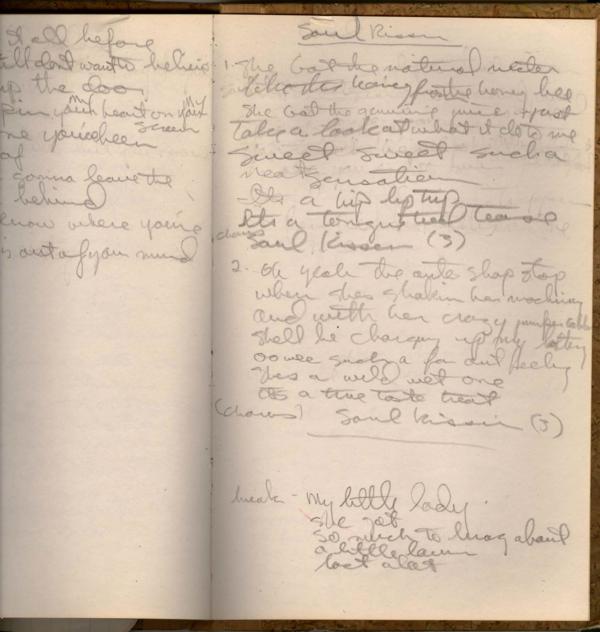 it all before
still dont want to believe
up the door
my heart on your my
screen
gonna leave the
behind
know where you're
is out of your mind
Soul Kissin
1. She Got the natural nectar
like the honey from the honey bee
She Got the genuine juice + just
take a look at what it do to me
Sweet Sweet Such a
neat sensation
Its a hip lip trip
Its a tongue tease
chorus
Soul Kissin (3)
2. Oh yeah the auto shop stop
when shes shakin her machinery
and with her crazy jumper cables
Shell be charging up my battery
oowee such a feeling
Shes a wild wet one
Its a true taste treat
(chorus) Soul Kissin (3)
break - My little lady
She got
so much to brag about
a little
lost a lot